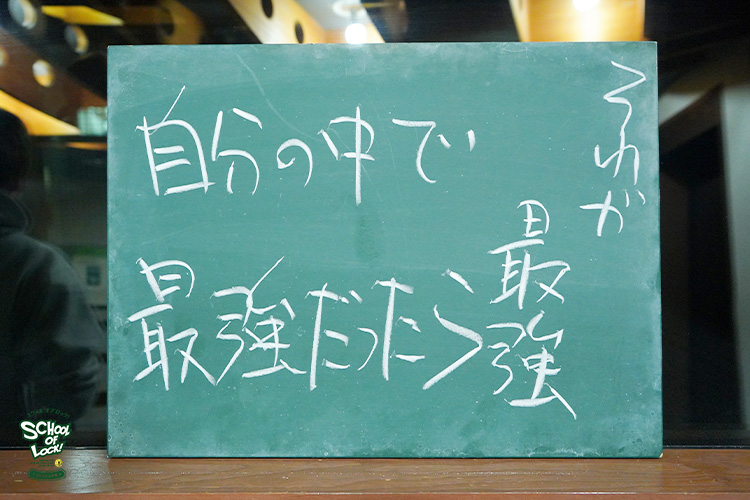 自分の中で
最強だったら
それが
最強
SCHOOL
OF
LOCK!